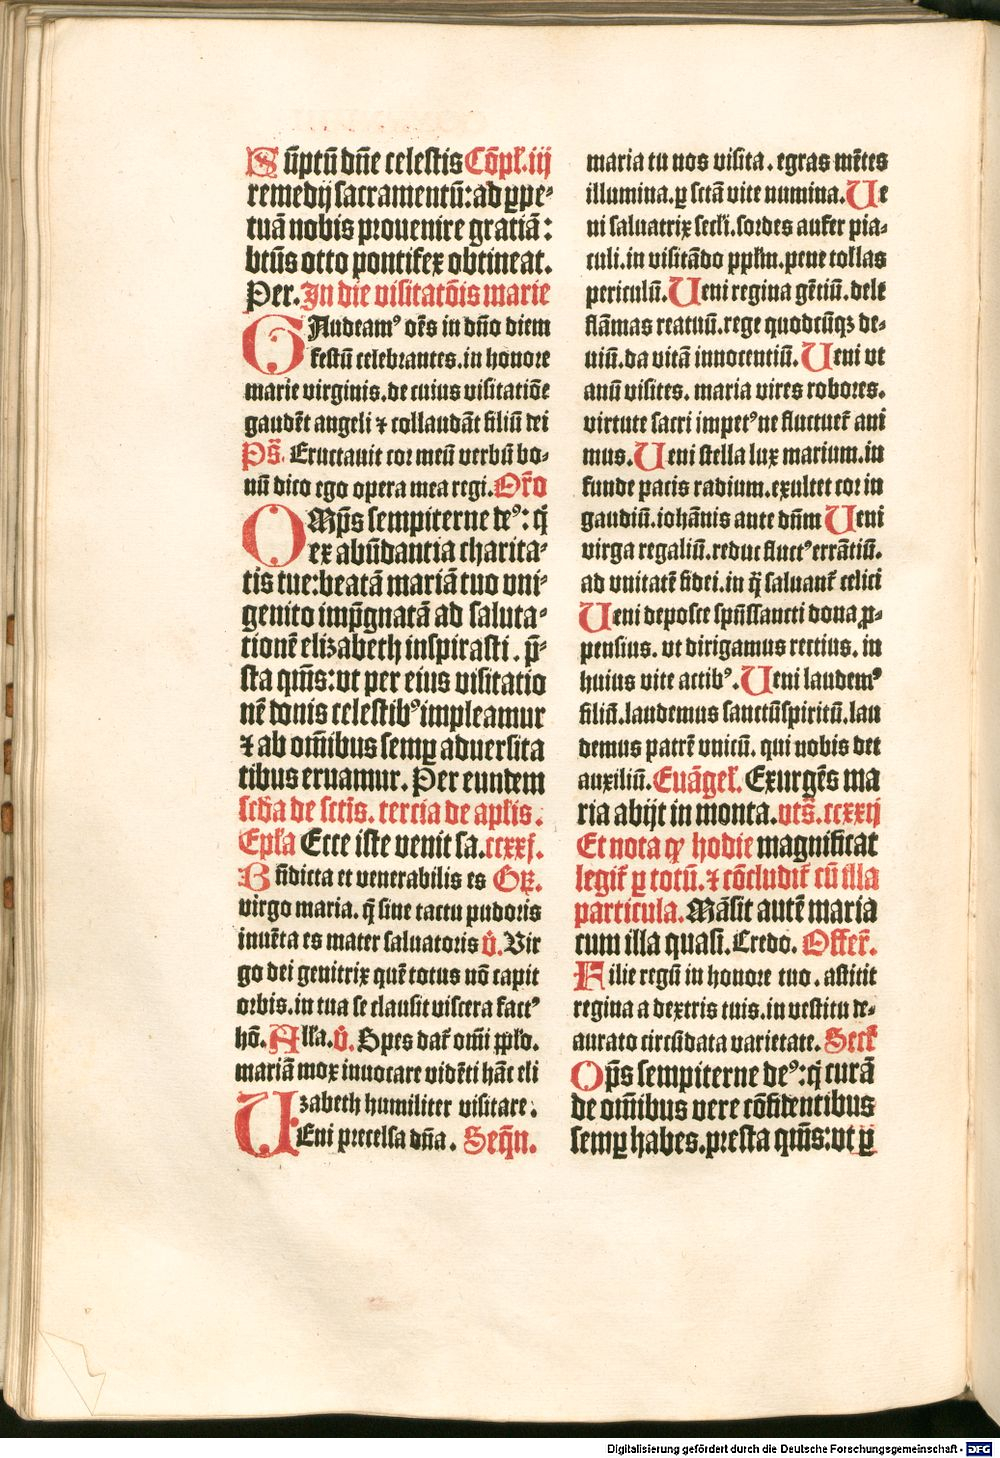 Sūptū dn̄e celestis Cōpl̄. iij
remedij sacramentū: ad ꝑpe-
tuā nobis prouenire gratiā:
btūs otto pontifex obtineat.
Per. In die visitatōis marie
GAudeamꝰ oēs in dn̄o diem
festū celebrantes. in honore
marie virginis. de cuius visitatiōe
gaudēt angeli ⁊ collaudāt filiū dei
Ps̄. Eructauit cor meū verbū bo-
nū dico ego opera mea regi. Or̄o
OMp̄s sempiterne deꝰ: q̄
ex abūdantia charita-
tis tue: beatā mariā tuo vni-
genito imp̄gnatā ad saluta-
tionē elizabeth inspirasti. p̄-
sta qm̄s: vt per eius visitatio
nē donis celestibꝰ impleamur
⁊ ab om̄ibus semꝑ aduersita
tibus eruamur. Per eundem
scd̄a de sctīs. tercia de apl̄is.
Epl̄a Ecce iste venit sa. ccxxj.
Bn̄dicta et venerabilis es Gr̄.
virgo maria. q̄ sine tactu pudoris
inuēta es mater saluatoris v̄. Vir
go dei genitrix quē totus nō capit
orbis. in tua se clausit viscera factꝰ
hō. All̄a. v̄. Spes dat̄ om̄i ppl̄o.
mariā mox inuocare vidēti hāc eli
zabeth humiliter visitare.
UEni precelsa dn̄a. Seqn̄.
maria tu nos visita. egras mētes
illumina. ꝑ sctā vite numina. Ue
ni saluatrix secl̄i. sordes aufer pia-
culi. in visitādo ppl̄m. pene tollas
periculū. Ueni regina gētiū. dele
flāmas reatuū. rege quodcūqꝫ de-
uiū. da vitā innocentiū. Ueni vt
anū visites. maria vires robores.
virtute sacri impetꝰ ne fluctuet̄ ani
mus. Ueni stella lux marium. in
funde pacis radium. exultet cor in
gaudiū. iohānis ante dn̄m Ueni
virga regaliū. reduc fluctꝰ errātiū.
ad vnitatē fidei. in q̄ saluant̄ celici
Ueni deposce spūssancti dona ꝓ-
pensius. vt dirigamus rectius. in
huius vite actibꝰ. Ueni laudemꝰ
filiū. laudemus sanctūspiritū. lau
demus patrē vnicū. qui nobis det
auxiliū. Euāgel̄. Exurgēs ma
ria abijt in monta. vts̄. ccxxij
Et nota ꝙ hodie magnificat
legit̄ ꝑ totū. ⁊ cōcludit̄ cū illa
particula. Māsit autē maria
cum illa quasi. Credo. Offer̄.
Filie regū in honore tuo. astitit
regina a dextris tuis. in vestitu de-
aurato circūdata varietate. Secr̄
Op̄s sempiterne deꝰ: q̄ curā
de om̄ibus vere cōfidentibus
semꝑ habes. presta qm̄s: vt ꝑ
Digitalisierung gefördert durch die Deutsche Forschungsgemeinschaft - DFG